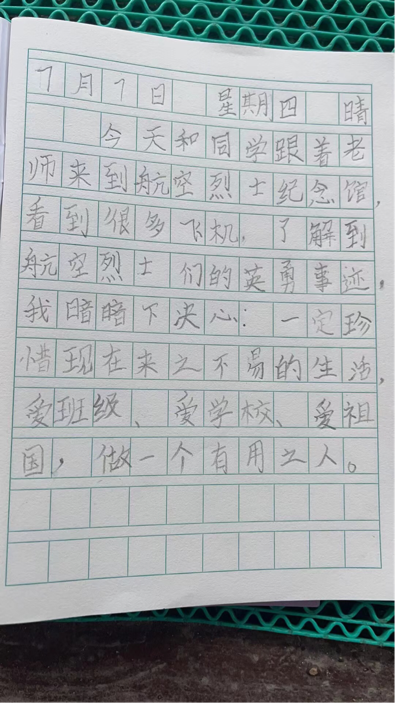 7月7日 星期四 晴
今天和同学跟着老
师来到航空烈士纪念馆，
看到很多飞机，了解到
航空烈士们的英勇事迹，
我暗暗下决心：一定珍
惜现在来之不易的生活，
爱班级、爱学校、爱祖
国，做一个有用之人。